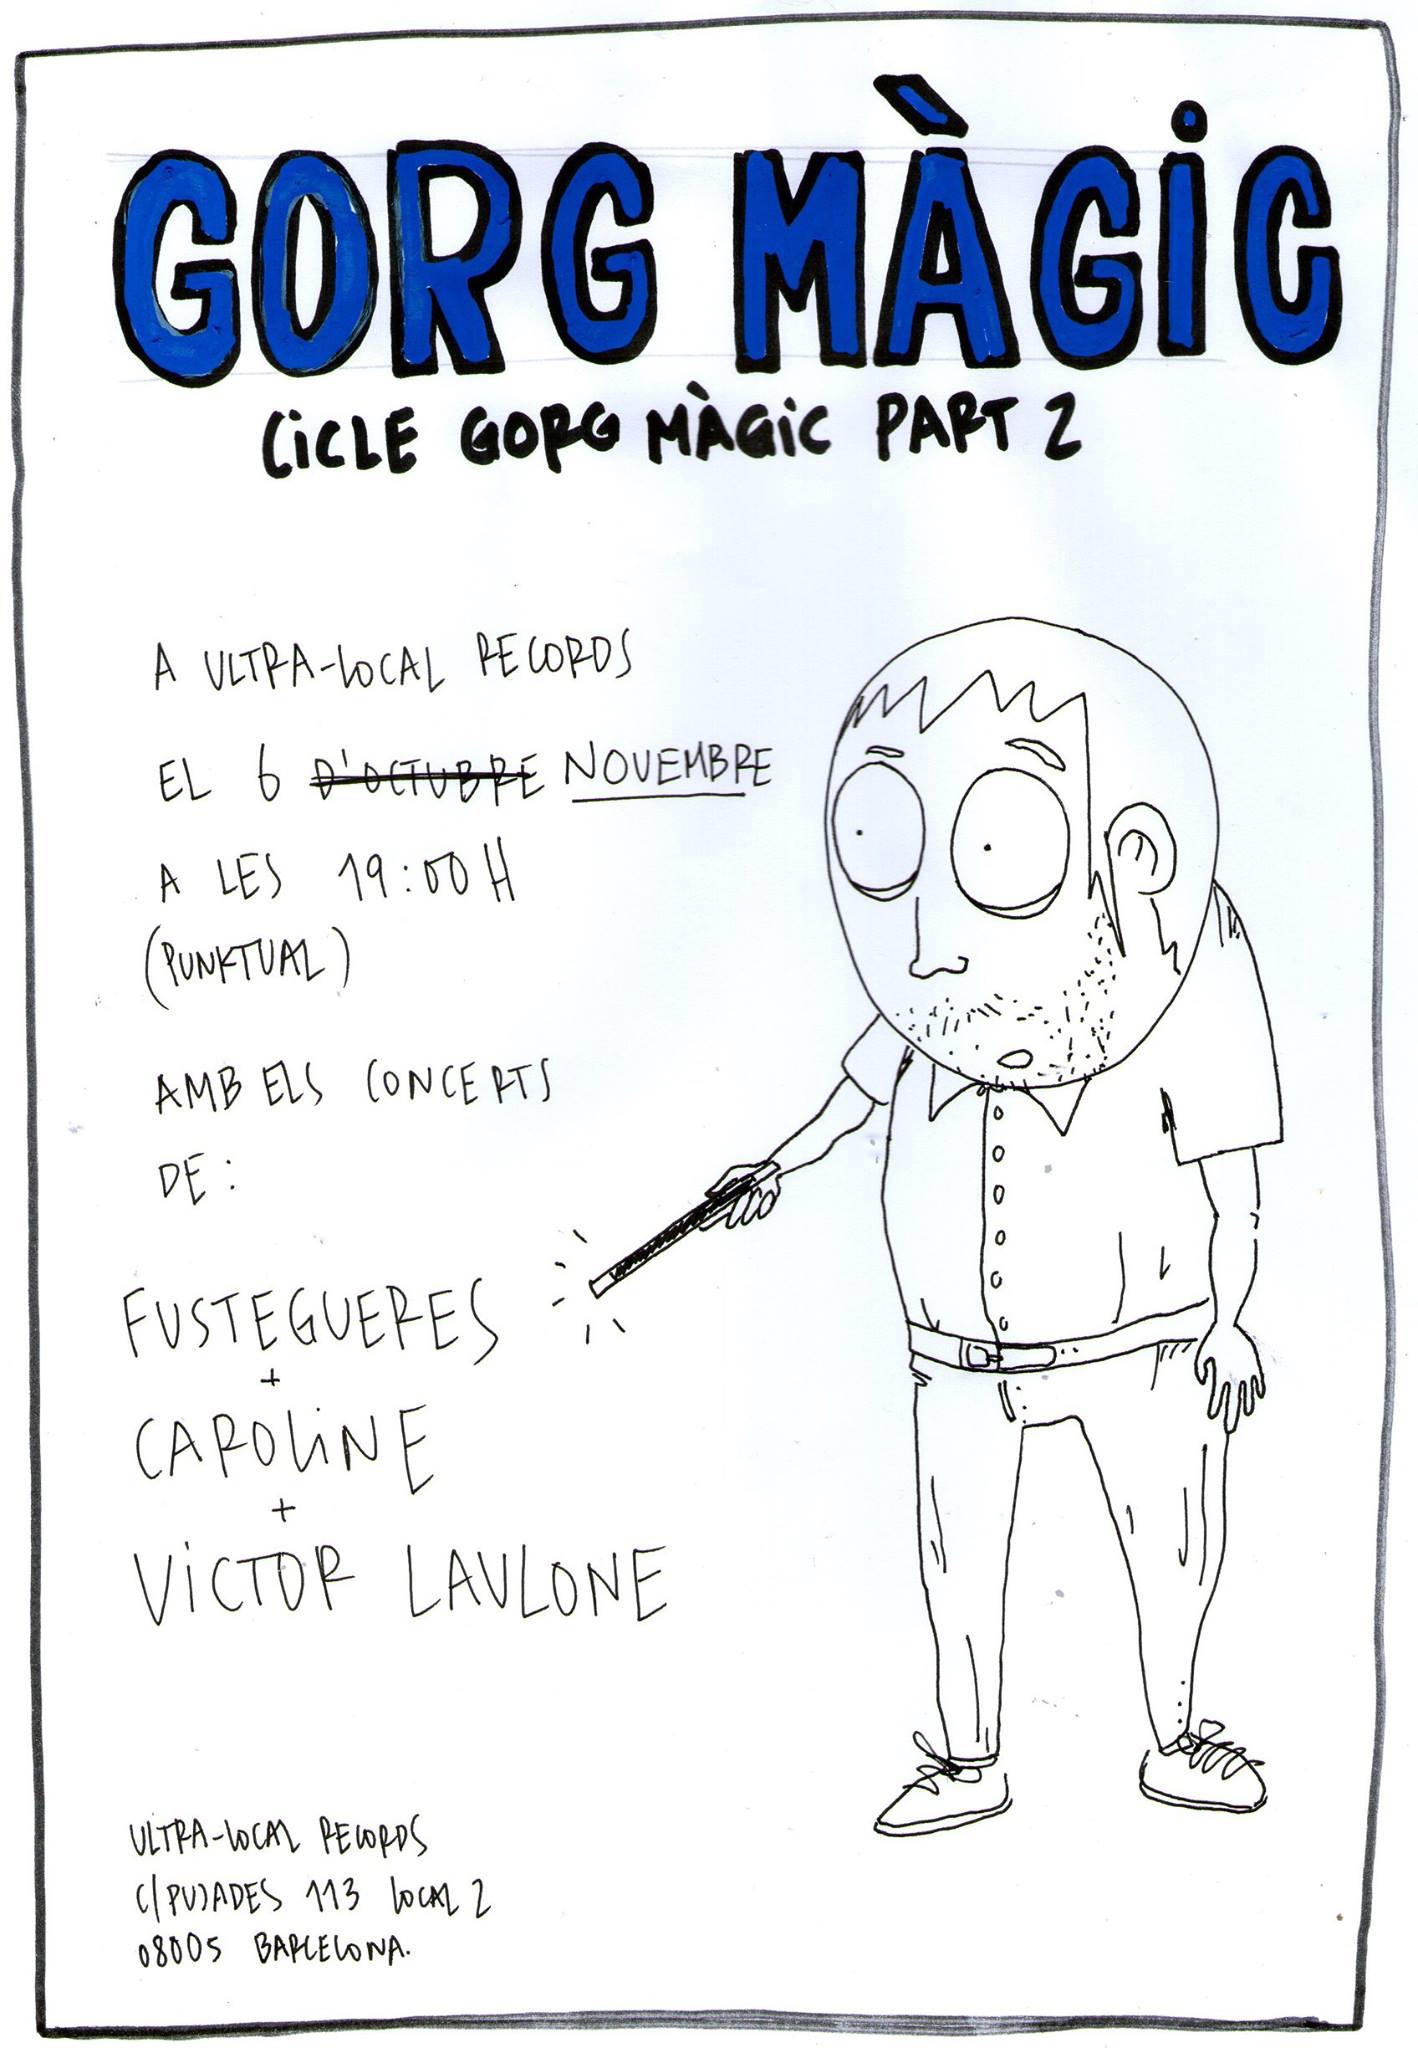 GORG MÀGiC
CiCLE GORG MÀGiC PART 2
A ULTRA-LOCAL RECORDS
EL 6 D'OCTUBRE NOVEMBRE
A LES 19:00H
(PUNKTUAL)
AMB ELS CONCERTS
DE:
FUSTEGUERES
+
CAROLiNE
+
ViCTOR LAVLONE
ULTRA-LOCAL RECORDS
C/PUJADES 113 LOCAL 2
08005 BARCELONA.